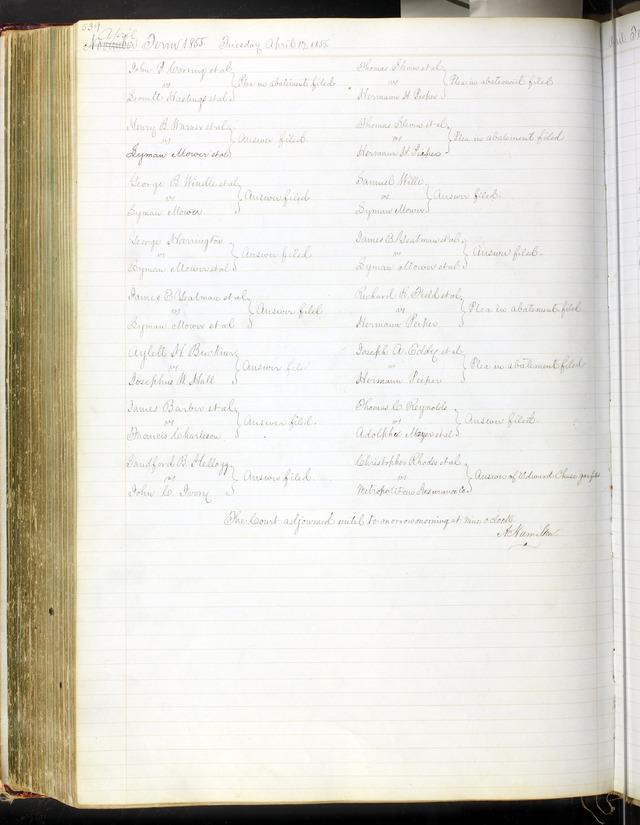 539
April
November Term 1855. Tuesday April 17, 1855.
John P Corning et al
vs
Plea in abatement filed
Hastings et al
Henry B. Warner et al
vs
Answer filed
Lyman Mower et al
George B Windle et al
vs
Answer filed
Lyman Mower
George Harrington
vs
Answer filed
Lyman Mower et al
James E Yeatman et al
vs
Answer filed
Lyman Mower et al
Aylett H. Buckner
vs
Answer filed
Josephus W Hall
James Barber et al
vs
Answer filed.
Francis Charleson
Sandford B. Kellogg
vs
Answer filed.
John C. Ivory
Thomas et al
vs
Plea in abatement filed
Hermann H. Peeper
Thomas et al
vs
Plea in abatement filed
Hermann H. Peeper
Samuel Willi
vs
Answer filed.
Lyman Mower
James E. Yeatman et al
vs
Answer filed.
Lyman Mower et al
Richard H. Field et al
vs
Plea in abatement filed
Hermann Peeper
Joseph A. Eddy et al
vs
Plea in abatement filed
Hermann Peeper
Thomas C. Reynolds
vs
Answer filed.
Adolphus Meyer et al
Christopher Rhodes et al
vs
Answer of Edward Chase garfee
Metropolitan Insurance Co
The Court adjourned until to morrow morning at nine o'clock
A Hamilton